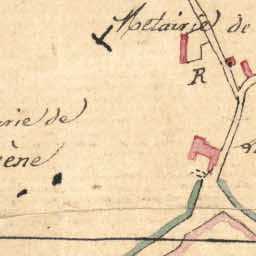 Metairie de
R
rie de
ène